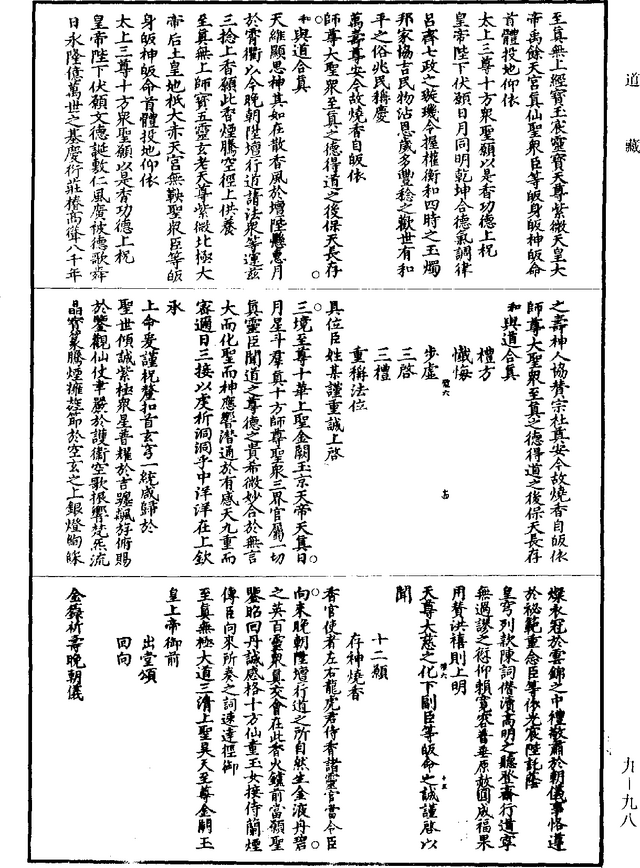 道藏
至真無上經寶玉宸靈寶天尊紫微天皇大
帝禹餘天宮真仙聖衆臣等皈身皈神皈命
首體投地仰依
太上三尊十方衆聖願以是香功德上祝
皇帝陛下伏願日月同明乾坤合德氣調律
呂齊七政之璇璣令握權衡和四時之玉燭
邦家協吉民物沾恩歲多豐稔之歡世有和
平之俗兆民稱慶
萬壽尊安令故燒香自皈依
師尊大聖衆至真之德得道之後保天長存
和與道合真
天維顯思神其如在散香風於壇陛懸惠月
於霄衢以今晚朝陞壇行道請法衆等運茲
三捻上香願此香煙騰空徑上供養
至真無上師寶五靈玄老天尊紫微北極大
帝后土皇地祇大赤天宮無鞅聖衆臣等皈
身皈神皈命首體投地仰依
太上三尊十方衆聖願以是香功德上祝
皇帝陛下伏願文德誕敷仁風廣被德歌舜
日永隆億萬世之基慶衍莊椿高聳八千年
之壽神人協贊宗社真安令故燒香自皈依
師尊大聖衆至真之德得道之後保天長存
和與道合真
禮方
懺悔
步虛
三啓
三禮
重稱法位
具位臣姓某謹重誠上啓
三境至尊十華上聖金闕玉京天帝天真日
月星斗羣真十方師尊聖衆三界官屬一切
真靈臣聞道之尊德之貴希微妙合於無言
大而化聖而神應響潛通於有感天九重而
審邇日三接以虔祈洞洞乎中洋洋在上欽
承
上命爰謹祝釐扣首玄穹一統咸歸於
聖世傾誠紫極衆星普耀於吉躔飆斿俯賜
於鑒觀仙仗聿嚴於護衛空歌振響梵炁流
晶寶篆騰煙擁旌節於空玄之上銀燈絢綵
燦衣冠於雲錦之中禮敬肅於朝儀事恪遵
於秘範重念臣等依光宸陛託蔭
皇穹列款陳詞僭瀆高明之聽登齋行道寧
無過謬之愆仰賴寬容普垂原赦圓成福果
用贊洪禧則上明
天尊大慈之化下副臣等皈命之誠謹啓以
聞
十二願
存神燒香
香官使者左右龍虎君侍香諸靈官當令臣
向來晚朝陞壇行道之所自然生金液丹碧
之英百靈衆真交會在此香火鑪前當願聖
鑒昭回丹誠感格十方仙童玉女接侍蘭煙
傳臣向來所奏之詞速達徑御
至真無極大道三清上聖昊天至尊金闕玉
皇上帝御前
出堂頌
回向
金籙祈壽晚朝儀
九—九八